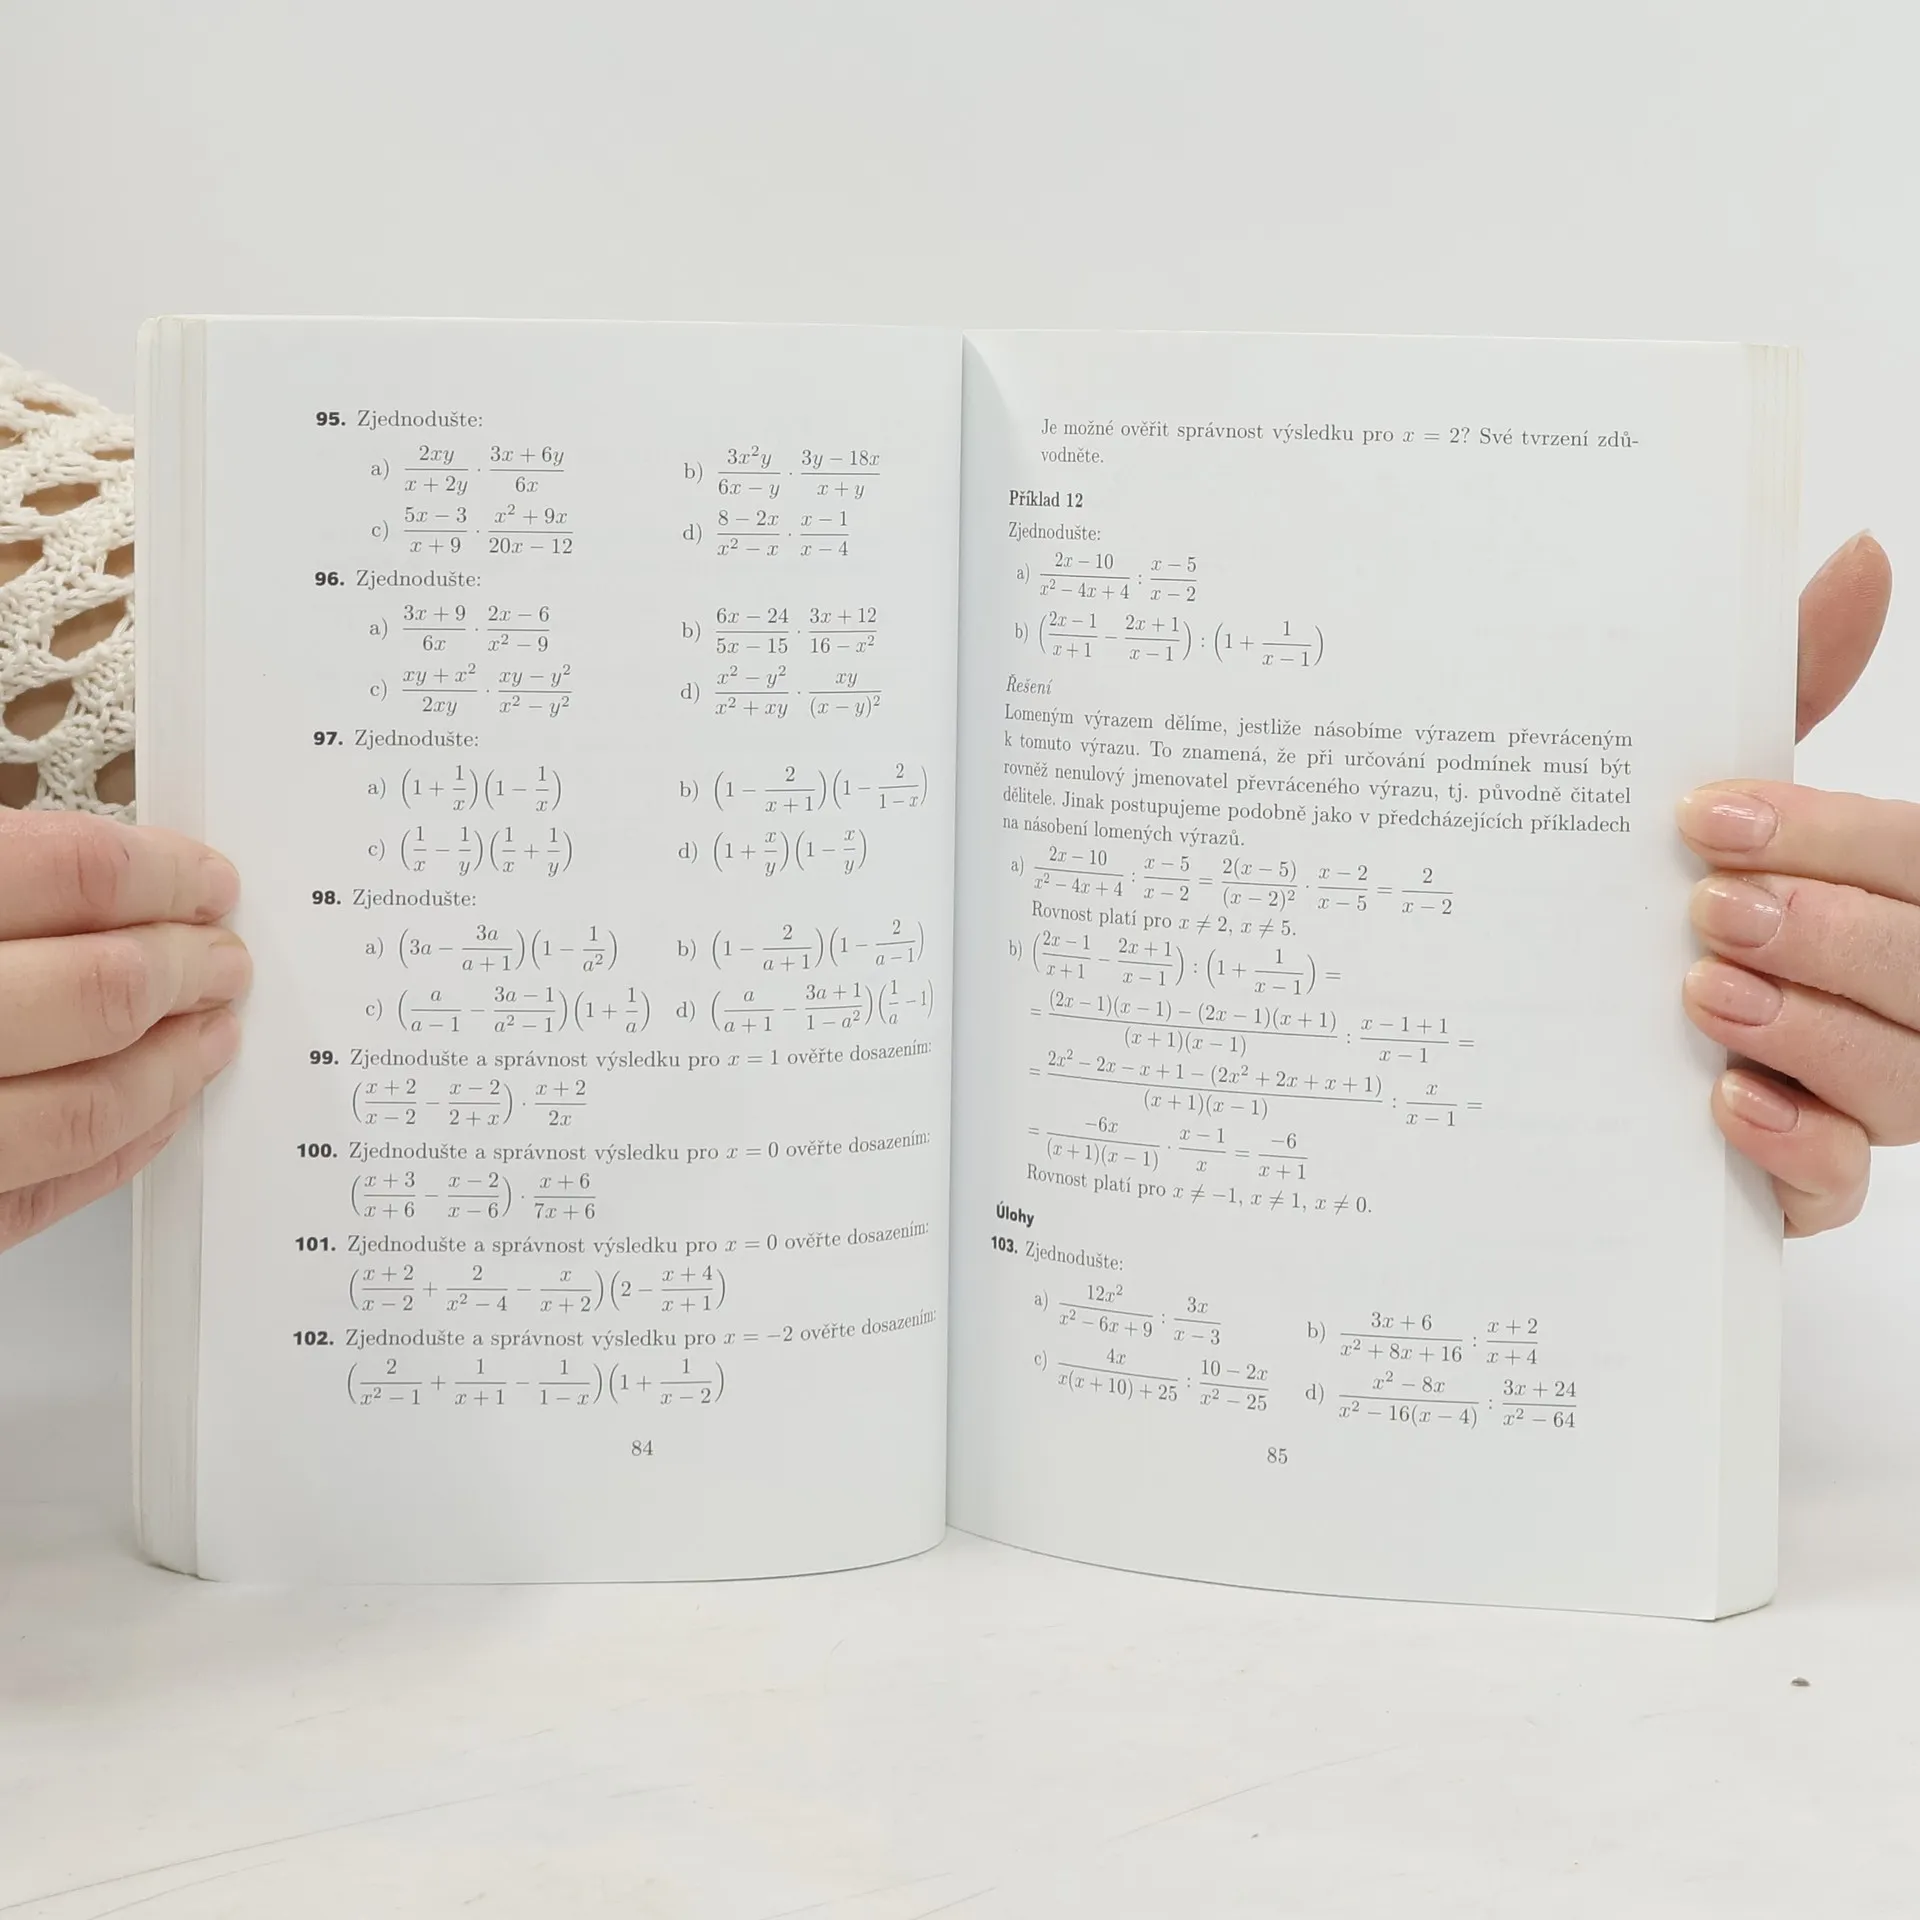 95. Zjednodušte:
a) \frac{2xy}{x + 2y} · \frac{3x + 6y}{6x} b) \frac{3x^2y}{6x − y} · \frac{3y − 18x}{x + y}
c) \frac{5x − 3}{x + 9} · \frac{x^2 + 9x}{20x − 12} d) \frac{8 − 2x}{x^2 − x} · \frac{x − 1}{x − 4}
96. Zjednodušte:
a) \frac{3x + 9}{6x} · \frac{2x − 6}{x^2 − 9} b) \frac{6x − 24}{5x − 15} · \frac{3x + 12}{16 − x^2}
c) \frac{xy + x^2}{2xy} · \frac{xy − y^2}{x^2 − y^2} d) \frac{x^2 − y^2}{x^2 + xy} · \frac{xy}{(x − y)^2}
97. Zjednodušte:
a) (1 + \frac{1}{x})(1 − \frac{1}{x}) b) (1 − \frac{2}{x + 1})(1 − \frac{2}{1 − x})
c) (\frac{1}{x} − \frac{1}{y})(\frac{1}{x} + \frac{1}{y}) d) (1 + \frac{x}{y})(1 − \frac{x}{y})
98. Zjednodušte:
a) (3a − \frac{3a}{a + 1})(1 − \frac{1}{a^2}) b) (1 − \frac{2}{a + 1})(1 − \frac{2}{a − 1})
c) (\frac{a}{a − 1} − \frac{3a − 1}{a^2 − 1})(1 + \frac{1}{a}) d) (\frac{a}{a + 1} − \frac{3a + 1}{1 − a^2})(\frac{1}{a} − 1)
99. Zjednodušte a správnost výsledku pro x = 1 ověřte dosazením:
(\frac{x + 2}{x − 2} − \frac{x − 2}{2 + x}) · \frac{x + 2}{2x}
100. Zjednodušte a správnost výsledku pro x = 0 ověřte dosazením:
(\frac{x + 3}{x + 6} − \frac{x − 2}{x − 6}) · \frac{x + 6}{7x + 6}
101. Zjednodušte a správnost výsledku pro x = 0 ověřte dosazením:
(\frac{x + 2}{x − 2} + \frac{2}{x^2 − 4} − \frac{x}{x + 2})(2 − \frac{x + 4}{x + 1})
102. Zjednodušte a správnost výsledku pro x = −2 ověřte dosazením:
(\frac{2}{x^2 − 1} + \frac{1}{x + 1} − \frac{1}{1 − x})(1 + \frac{1}{x − 2})
84
Je možné ověřit správnost výsledku pro x = 2? Své tvrzení zdů-
vodněte.
Příklad 12
Zjednodušte:
a) \frac{2x − 10}{x^2 − 4x + 4} : \frac{x − 5}{x − 2}
b) (\frac{2x − 1}{x + 1} − \frac{2x + 1}{x − 1}) : (1 + \frac{1}{x − 1})
Řešení
Lomeným výrazem dělíme, jestliže násobíme výrazem převráceným
k tomuto výrazu. To znamená, že při určování podmínek musí být
rovněž nenulový jmenovatel převráceného výrazu, tj. původně čitatel
dělitele. Jinak postupujeme podobně jako v předcházejících příkladech
na násobení lomených výrazů.
a) \frac{2x − 10}{x^2 − 4x + 4} : \frac{x − 5}{x − 2} = \frac{2(x − 5)}{(x − 2)^2} · \frac{x − 2}{x − 5} = \frac{2}{x − 2}
Rovnost platí pro x ≠ 2, x ≠ 5.
b) (\frac{2x − 1}{x + 1} − \frac{2x + 1}{x − 1}) : (1 + \frac{1}{x − 1}) =
= \frac{(2x − 1)(x − 1) − (2x − 1)(x + 1)}{(x + 1)(x − 1)} : \frac{x − 1 + 1}{x − 1} =
= \frac{2x^2 − 2x − x + 1 − (2x^2 + 2x + x + 1)}{(x + 1)(x − 1)} : \frac{x}{x − 1} =
= \frac{−6x}{(x + 1)(x − 1)} · \frac{x − 1}{x} = \frac{−6}{x + 1}
Rovnost platí pro x ≠ −1, x ≠ 1, x ≠ 0.
Úlohy
103. Zjednodušte:
a) \frac{12x^2}{x^2 − 6x + 9} : \frac{3x}{x − 3} b) \frac{3x + 6}{x^2 + 8x + 16} : \frac{x + 2}{x + 4}
c) \frac{4x}{x(x + 10) + 25} : \frac{10 − 2x}{x^2 − 25} d) \frac{x^2 − 8x}{x^2 − 16(x − 4)} : \frac{3x + 24}{x^2 − 64}
85